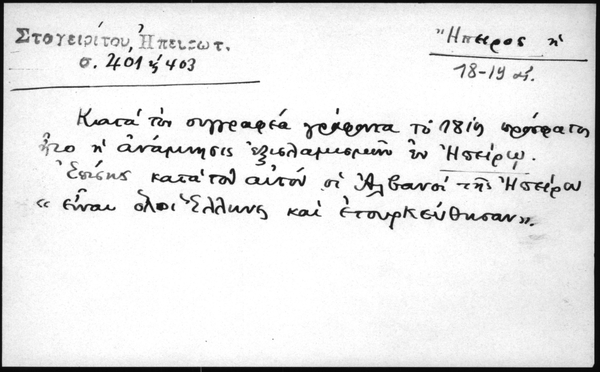 Σταγειρίτου, Ἠπειρωτ.
σ. 401 ἑ 403
Ἤπειρος ἡ
18-19 αἰ.
Κατὰ τὸν συγγραφέα γράφοντα τὸ 1819 πρόσφατος
ἦτο ἡ ἀνάμνησις ἐξισλαμισμῶν ἐν Ἠπείρῳ.
Ἐπίσης κατὰ τὸν αὐτὸν οἱ Ἀλβανοὶ τῆς Ἠπείρου
« εἶναι ὅλοι Ἕλληνες καὶ ἐτουρκεύθησαν».